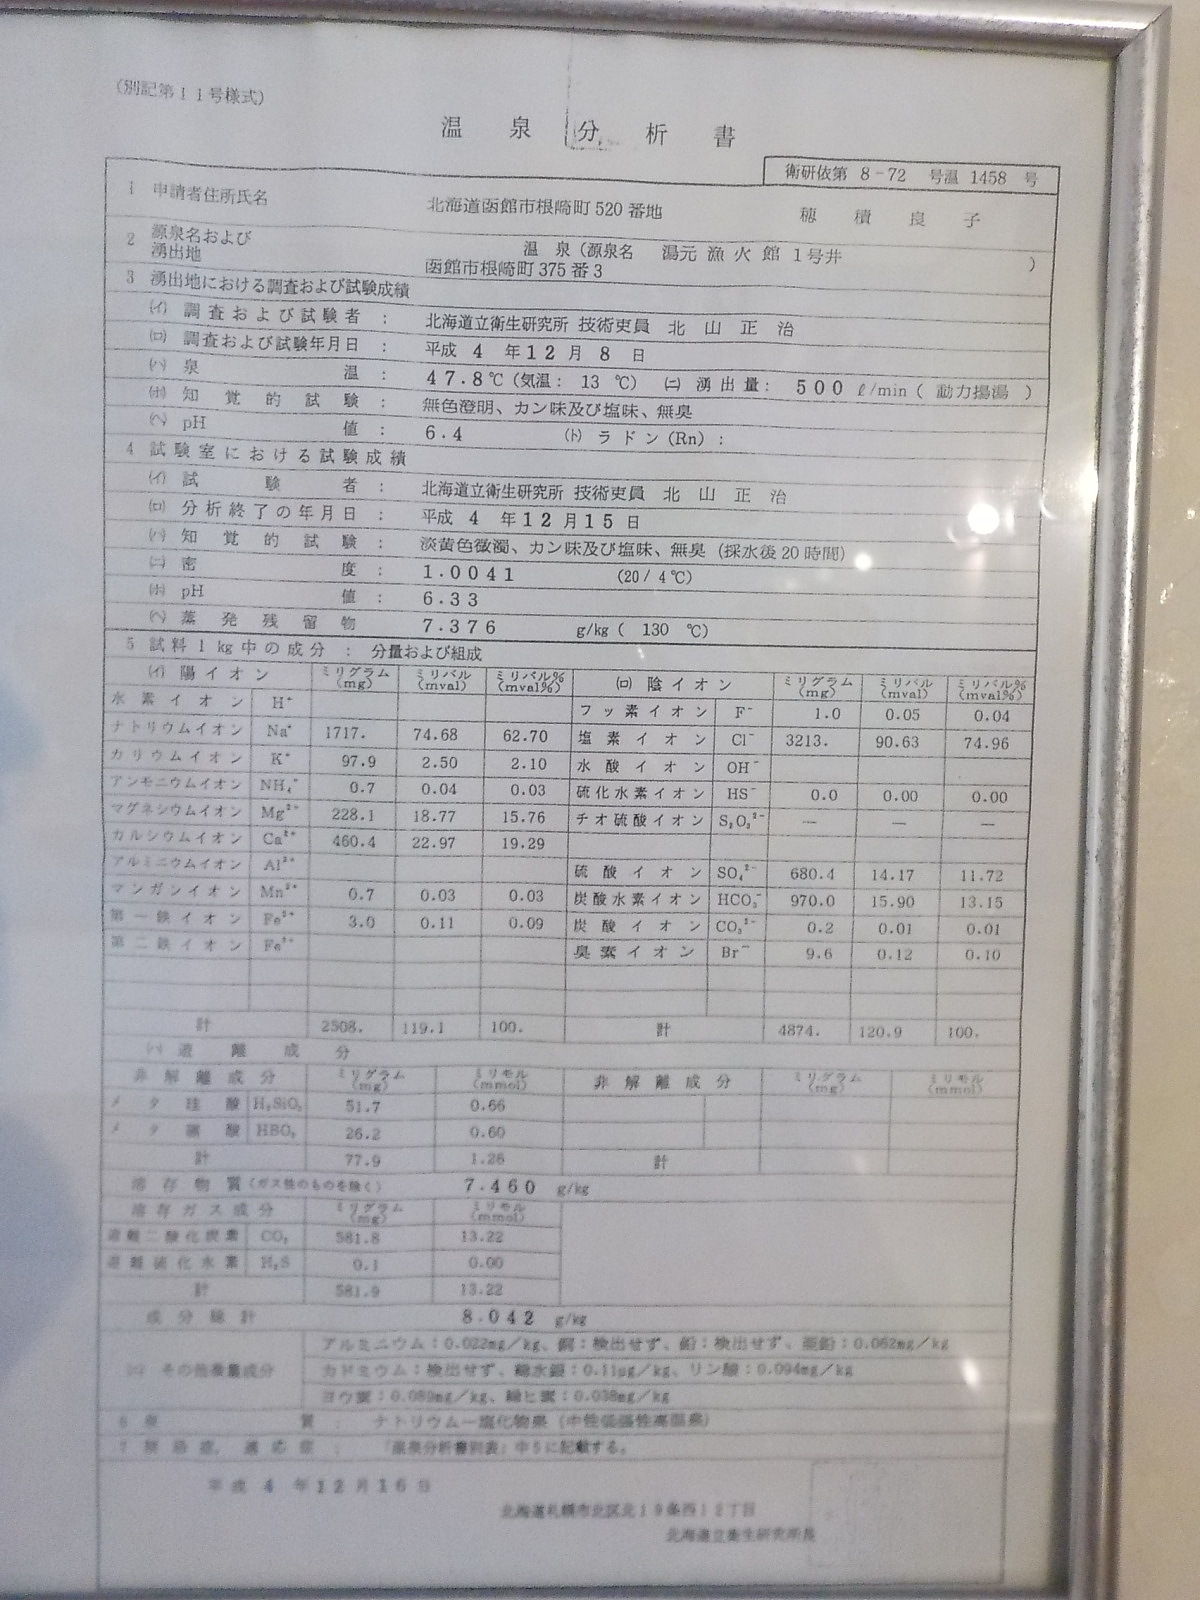 (別記第11号様式)
温泉分析書
衛研依第 8-72 号温 1458 号
1 申請者住所氏名 北海道函館市根崎町520番地 穂積良子
2 源泉名および湧出地 温泉(源泉名 湯元漁火館1号井 )
函館市根崎町375番3
3 湧出地における調査および試験成績
(イ) 調査および試験者 : 北海道立衛生研究所 技術吏員 北山正治
(ロ) 調査および試験年月日 : 平成 4 年12月 8 日
(ハ) 泉温 : 47.8℃(気温: 13 ℃) (ニ) 湧出量: 500 ℓ/min( 動力揚湯 )
(ホ) 知覚的試験 : 無色澄明、カン味及び塩味、無臭
(ヘ) pH値 : 6.4 (ト) ラドン(Rn) :
4 試験室における試験成績
(イ) 試験者 : 北海道立衛生研究所 技術吏員 北山正治
(ロ) 分析終了の年月日 : 平成 4 年12月15日
(ハ) 知覚的試験 : 淡黄色微濁、カン味及び塩味、無臭 (採水後20時間)
(ニ) 密度 : 1.0041 (20/4℃)
(ホ) pH値 : 6.33
(ヘ) 蒸発残留物 7.376 g/kg( 130 ℃)
5 試料1kg中の成分 : 分量および組成
(イ) 陽イオン ミリグラム(mg) ミリバル(mval) ミリバル%(mval%) (ロ) 陰イオン ミリグラム(mg) ミリバル(mval) ミリバル%(mval%)
水素イオン H⁺ フッ素イオン F⁻ 1.0 0.05 0.04
ナトリウムイオン Na⁺ 1717. 74.68 62.70 塩素イオン Cl⁻ 3213. 90.63 74.96
カリウムイオン K⁺ 97.9 2.50 2.10 水酸イオン OH⁻
アンモニウムイオン NH₄⁺ 0.7 0.04 0.03 硫化水素イオン HS⁻ 0.0 0.00 0.00
マグネシウムイオン Mg²⁺ 228.1 18.77 15.76 チオ硫酸イオン S₂O₃²⁻ — — —
カルシウムイオン Ca²⁺ 460.4 22.97 19.29
アルミニウムイオン Al³⁺ 硫酸イオン SO₄²⁻ 680.4 14.17 11.72
マンガンイオン Mn²⁺ 0.7 0.03 0.03 炭酸水素イオン HCO₃⁻ 970.0 15.90 13.15
第一鉄イオン Fe²⁺ 3.0 0.11 0.09 炭酸イオン CO₃²⁻ 0.2 0.01 0.01
第二鉄イオン Fe³⁺ 臭素イオン Br⁻ 9.6 0.12 0.10
計 2508. 119.1 100. 計 4874. 120.9 100.
(ハ) 遊離成分
非解離成分 ミリグラム(mg) ミリモル(mmol) 非解離成分 ミリグラム(mg) ミリモル(mmol)
メタ珪酸 H₂SiO₃ 51.7 0.66
メタ硼酸 HBO₂ 26.2 0.60
計 77.9 1.26 計
溶存物質(ガス性のものを除く) 7.460 g/kg
溶存ガス成分 ミリグラム(mg) ミリモル(mmol)
遊離二酸化炭素 CO₂ 581.8 13.22
遊離硫化水素 H₂S 0.1 0.00
計 581.9 13.22
成分総計 8.042 g/kg
(ニ) その他微量成分 アルミニウム:0.022mg/kg、銅:検出せず、鉛:検出せず、亜鉛:0.062mg/kg
カドミウム:検出せず、総水銀:0.11μg/kg、リン酸:0.094mg/kg
ヨウ素:0.089mg/kg、総ヒ素:0.038mg/kg
6 泉質 : ナトリウム-塩化物泉 (中性低張性高温泉)
7 禁忌症、適応症 : 「温泉分析書別表」中5に記載する。
平成 4 年12月16日
北海道札幌市北区北19条西12丁目
北海道立衛生研究所長